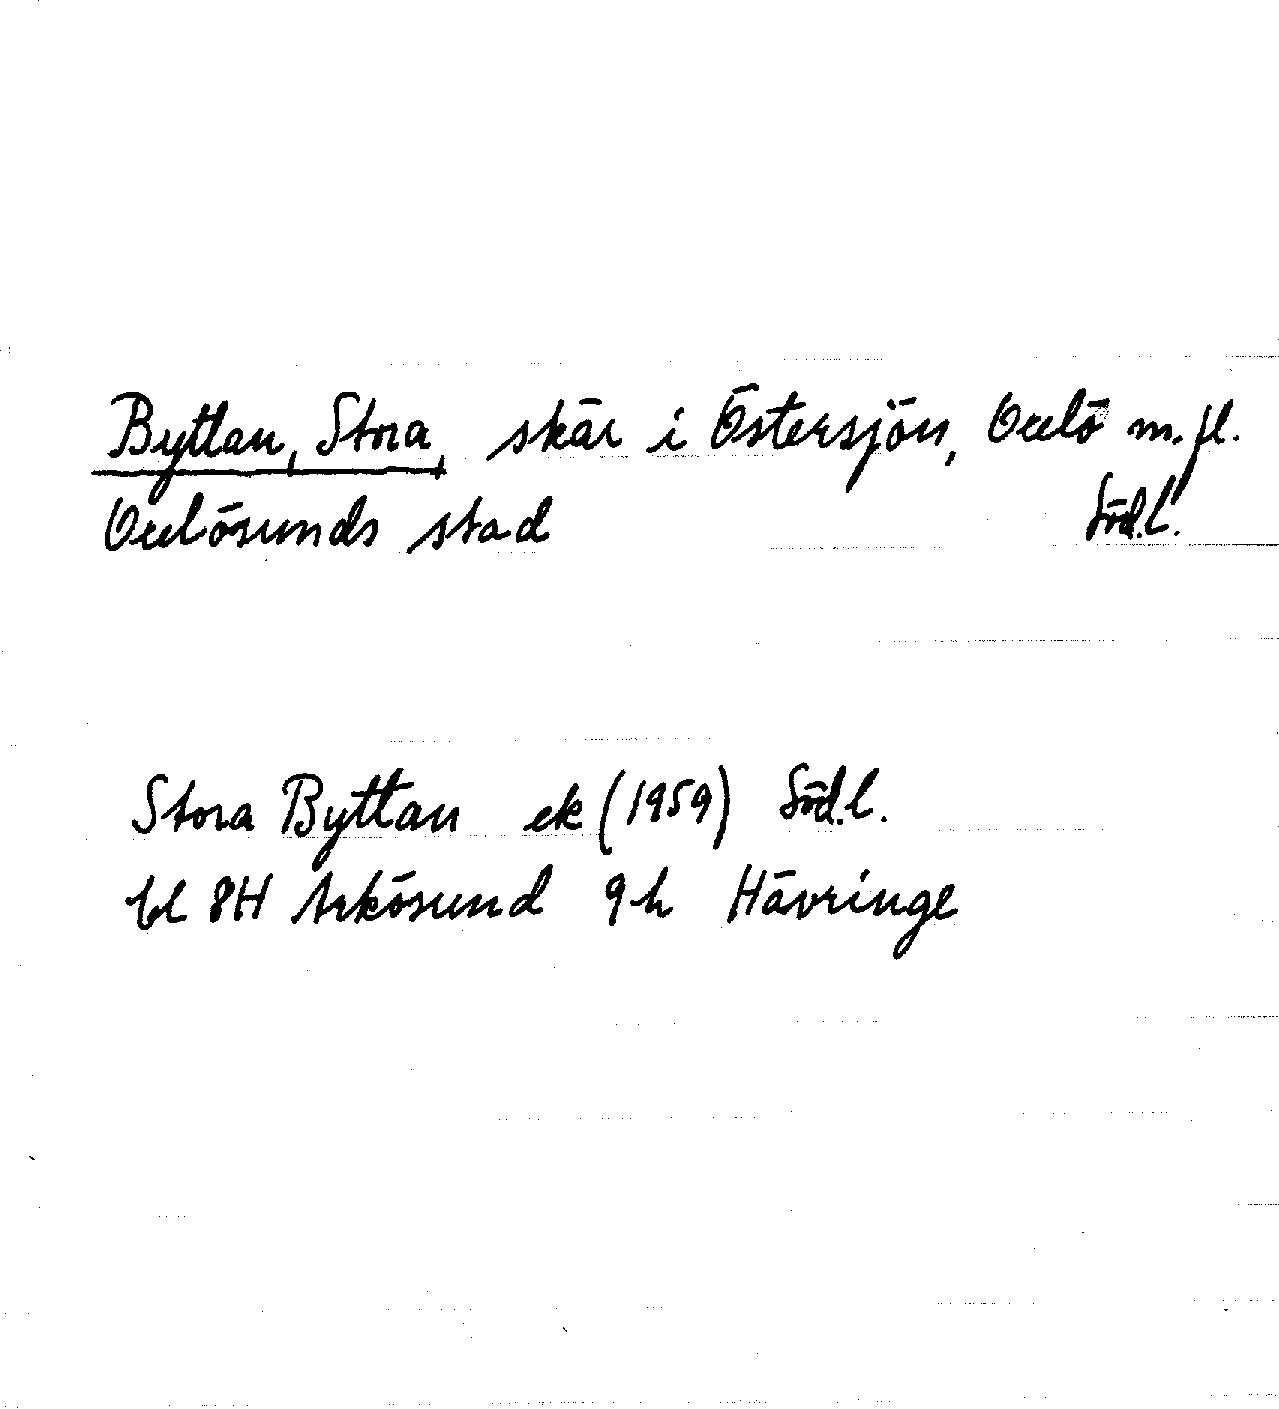 Byttan, Stora, skär i Östersjön, Oxelö m.fl.
Oxelösunds stad Söd.l.
Stora Byttan ek (1959) Söd.l.
bl 8H Arkösund 9h Hävringe